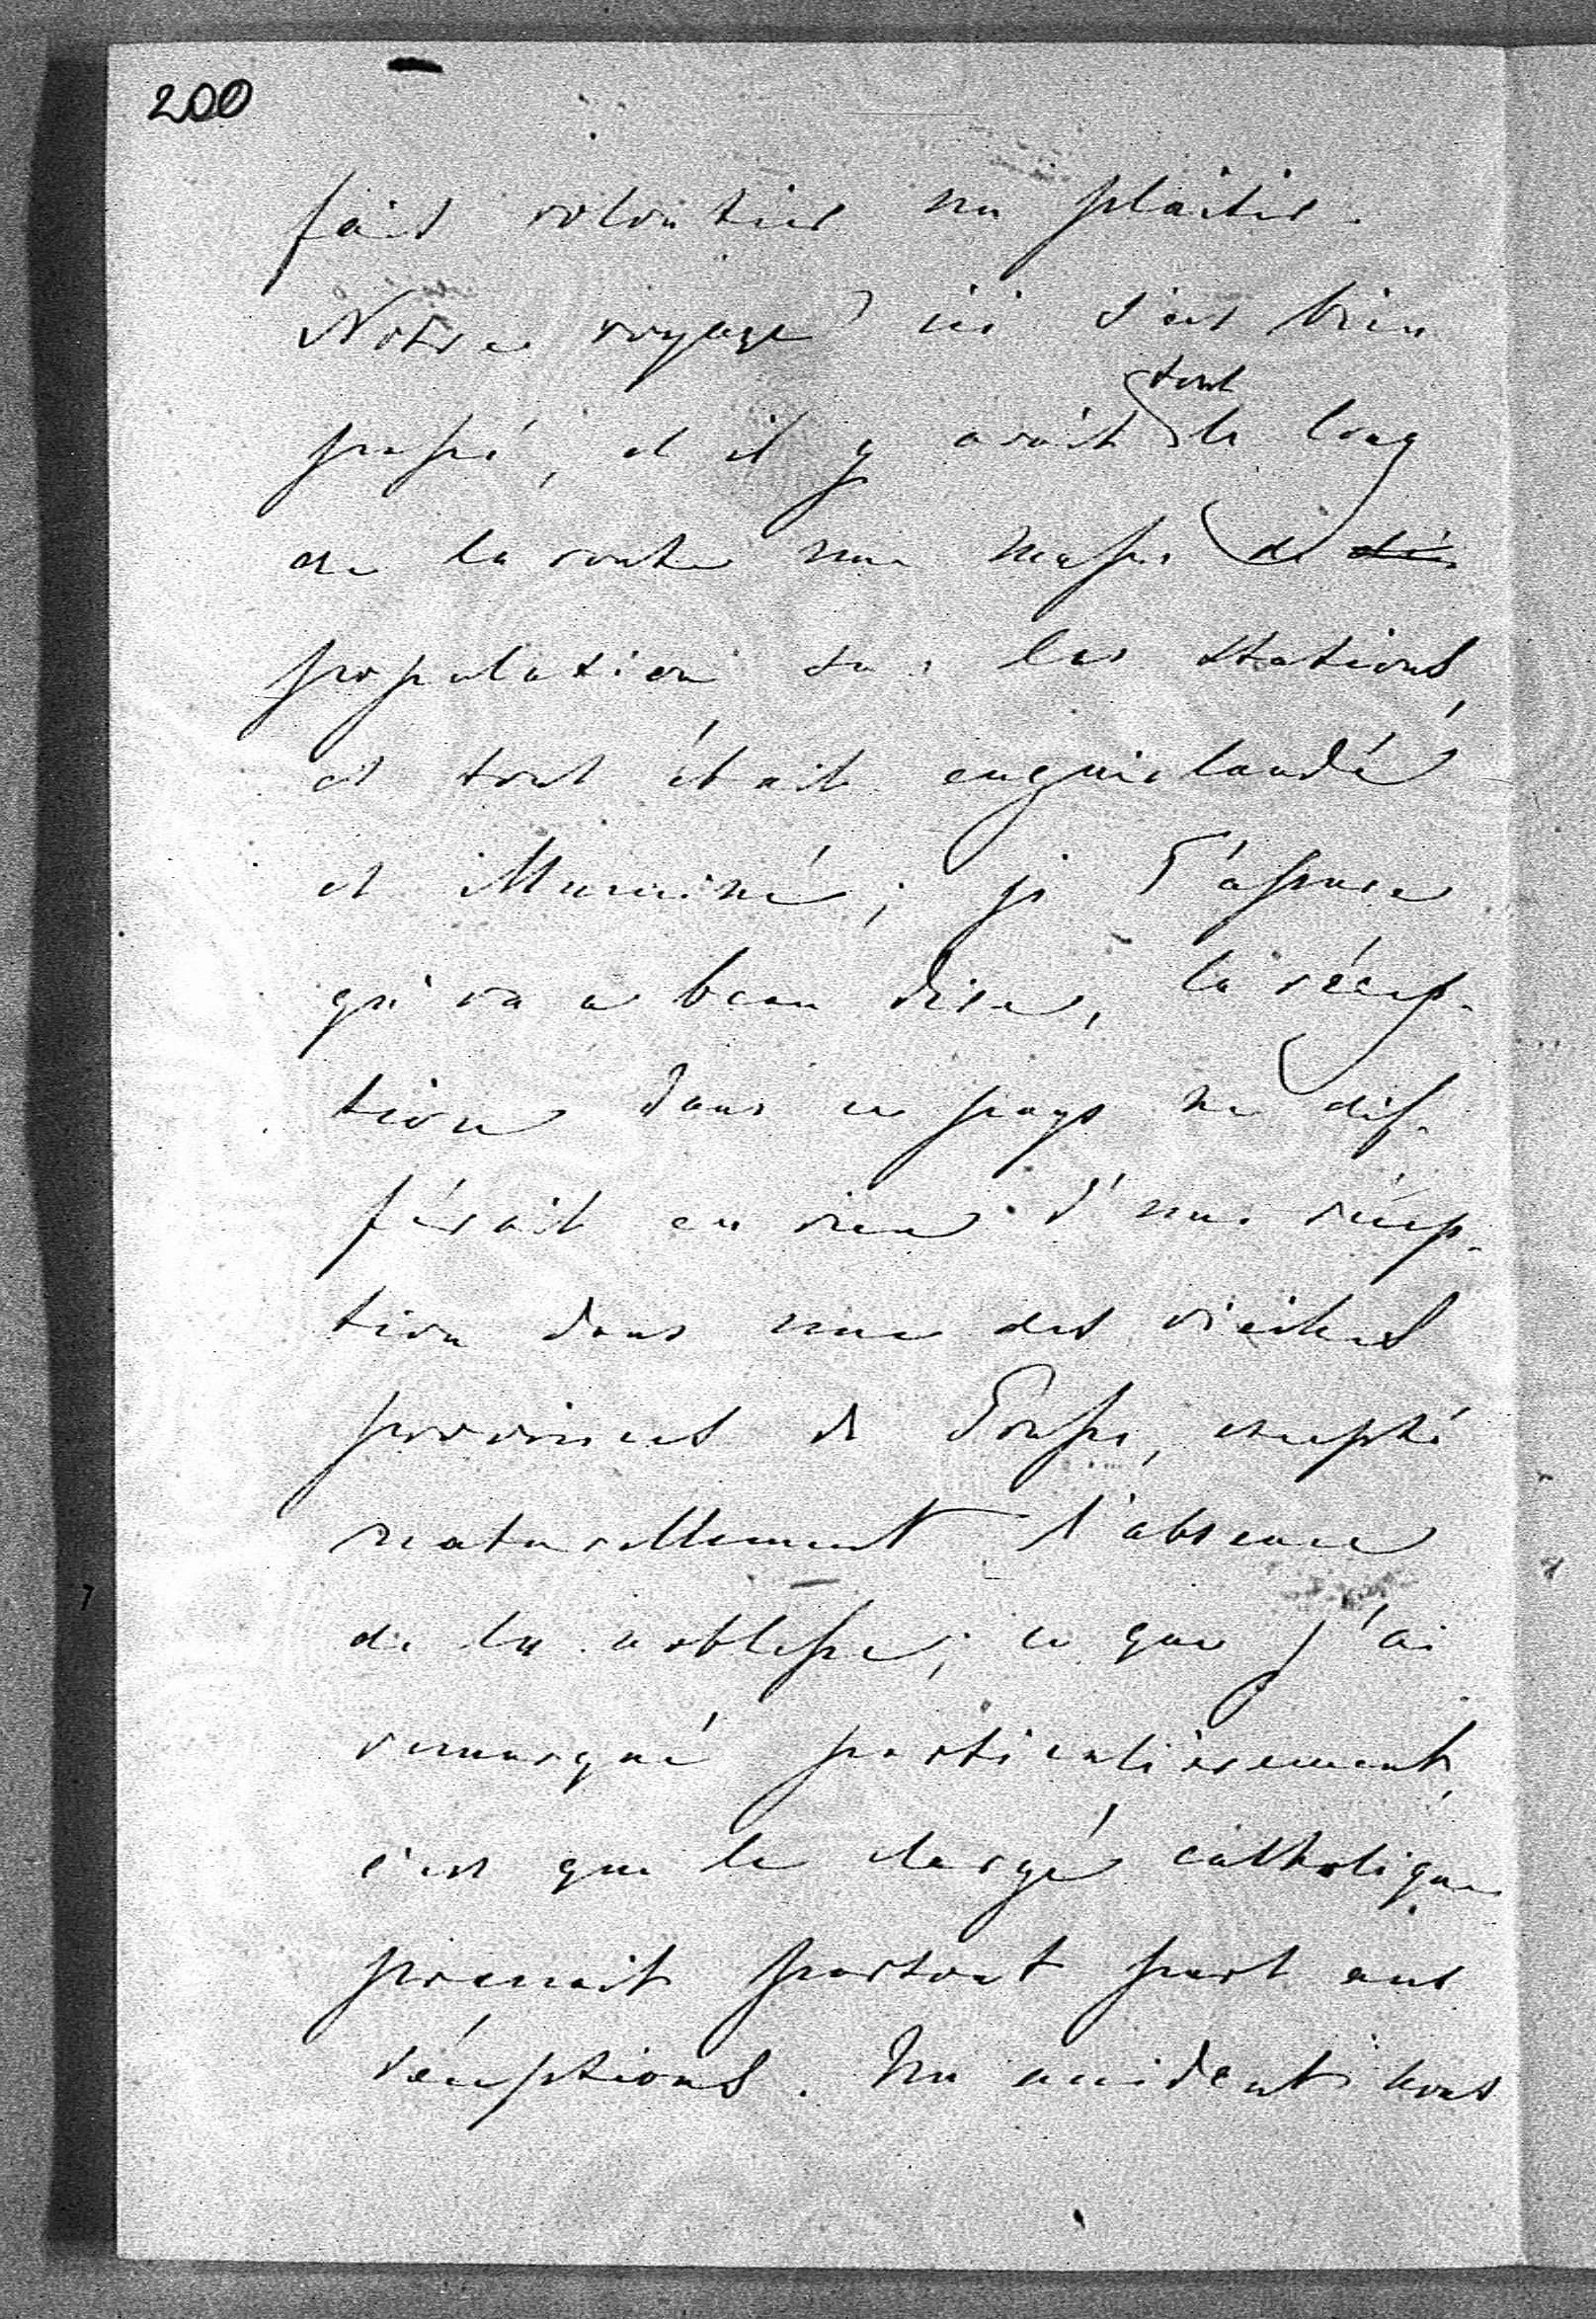 200
fait volontier un plaisir.
Notre voyage ici s'est bien
tout
passé, et il y avait le long
de la route une masse de de
population sur les stations,
et tout était enguirlandé
et illuminé; je T'assure
qu'on a beau dire, la récep-
tion dans ce pays ne dif-
férait en rien d'une récep-
tion dans une des vieilles
provinces de Prusse, excepté
naturellement l'absence
de la noblesse; ce que j'ai
remarqué particulièrement,
c'est que le clergé catholique
prenait partout part aux
réceptions. Un accident nous